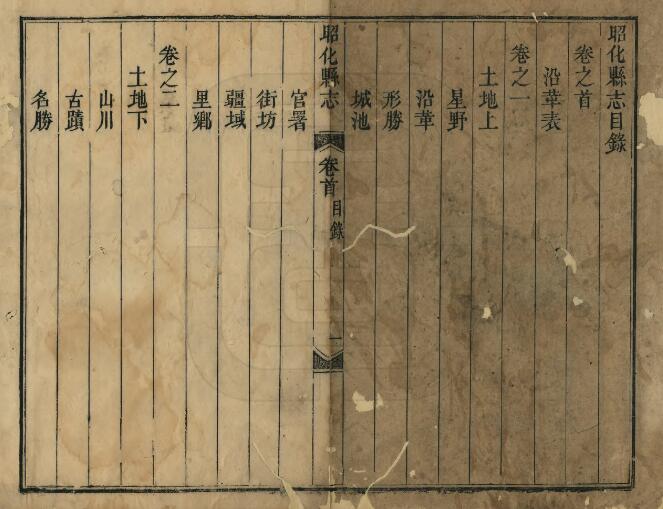 昭化縣志目錄
卷之首
沿革表
卷之一
土地上
星野
沿革
形勝
城池
昭化縣志
卷首
目錄
一
官署
街坊
疆域
里鄉
卷之二
土地下
山川
古蹟
名勝